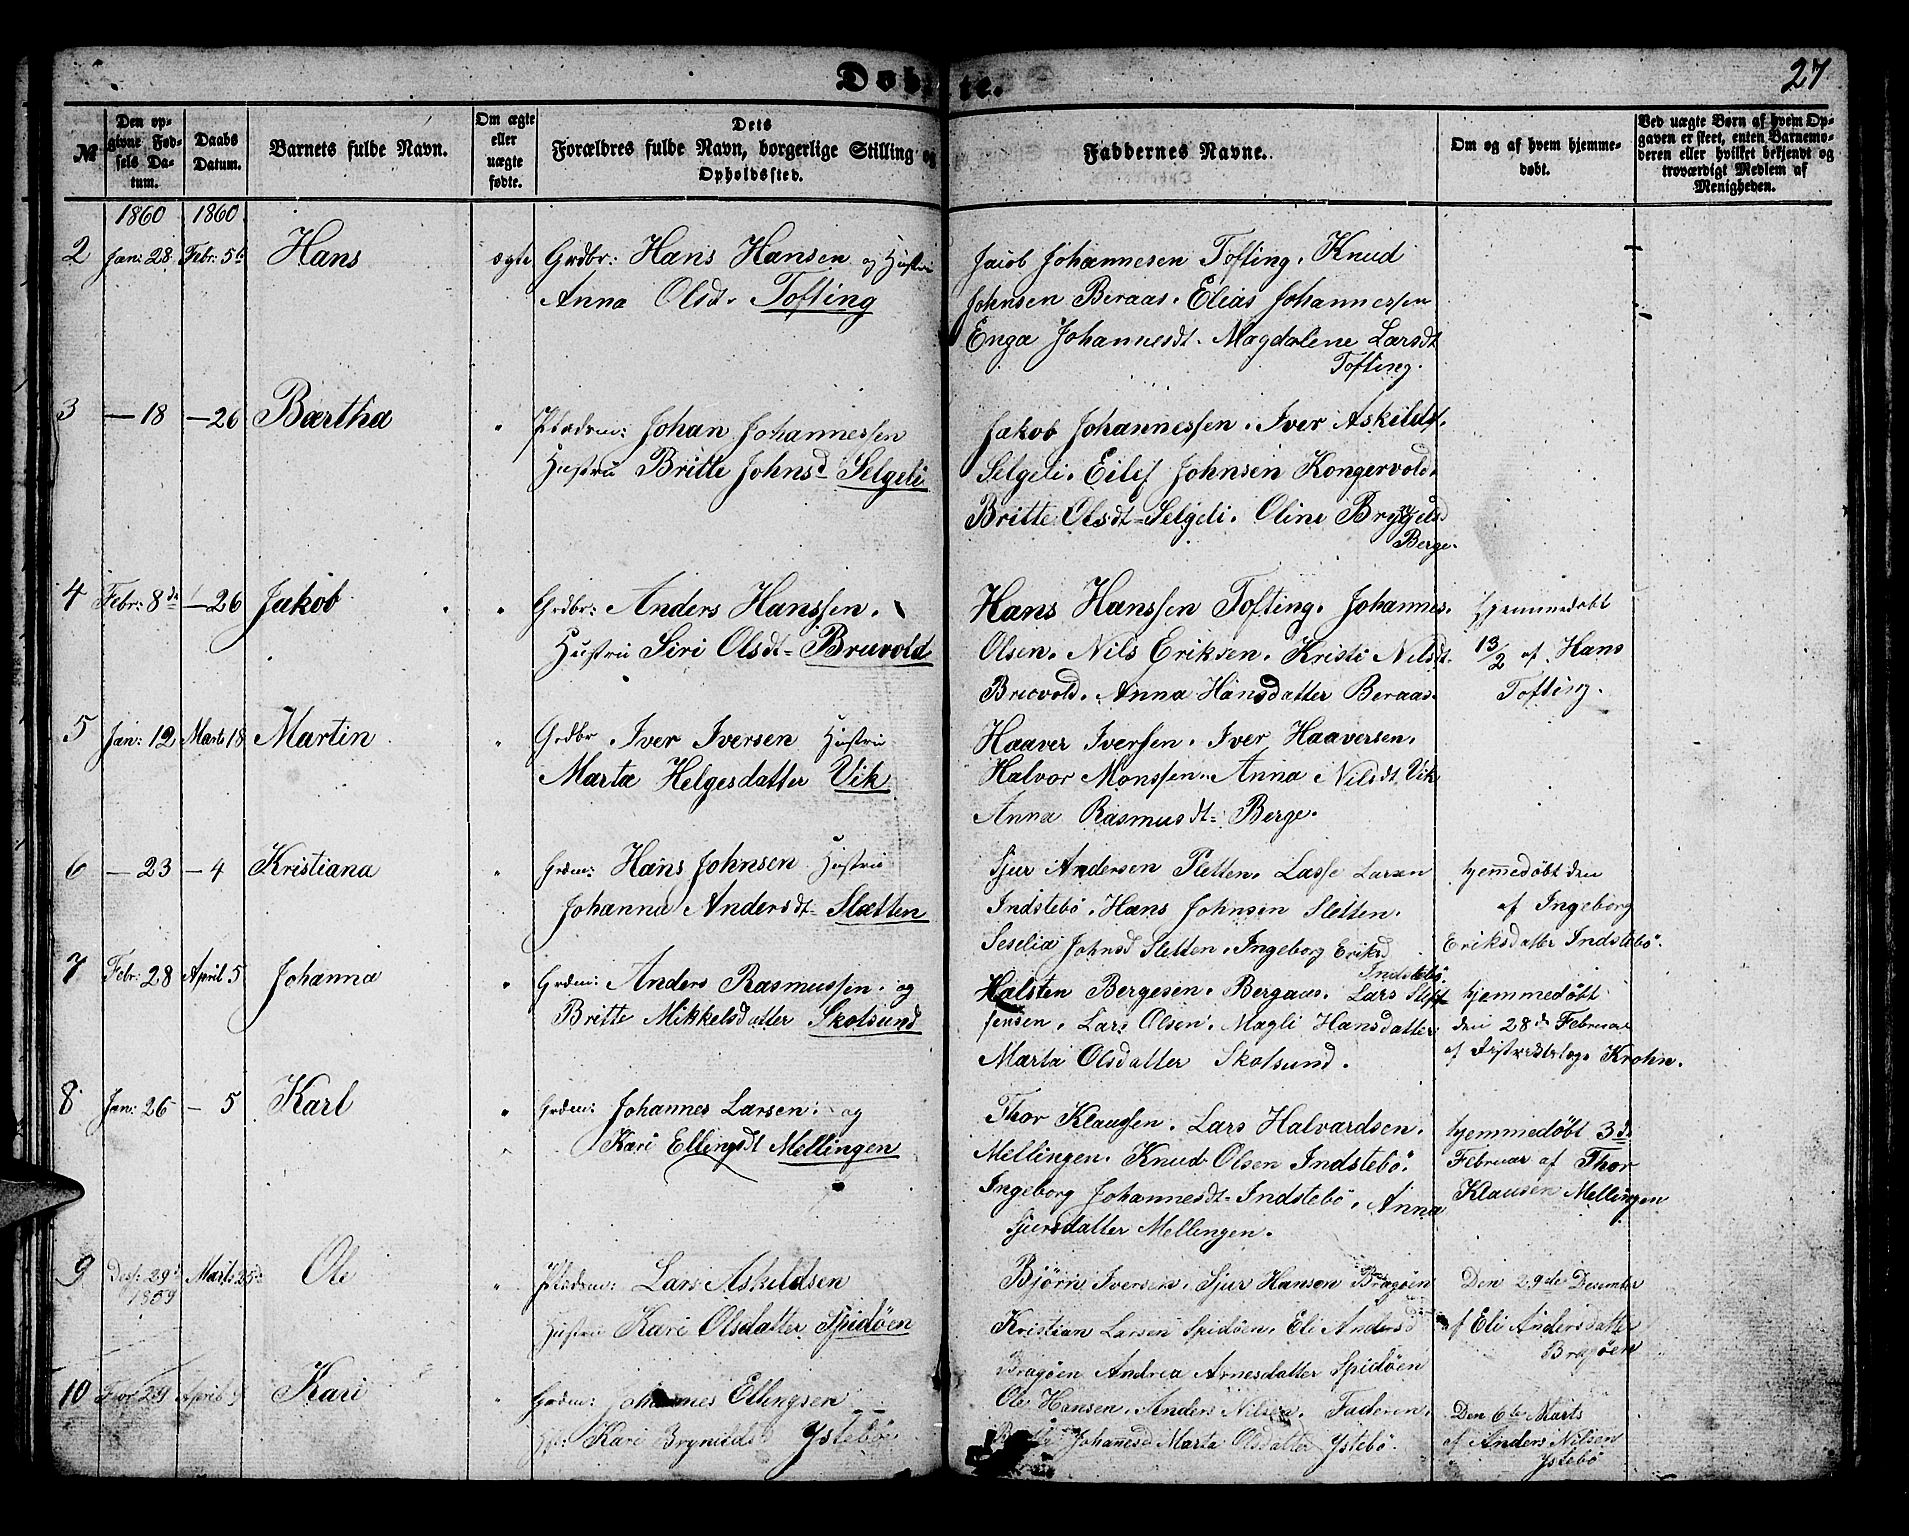 Døbte.
27
№
Den op-
givne Fød-
sels Da-
tum.
Daabs
Datum.
Barnets fulde Navn.
Om ægte
eller
uægte
fødte.
Dets
Forældres fulde Navn, borgerlige Stilling og
Opholdssted.
Faddernes Navne.
Om og af hvem hjemme-
døbt.
Ved uægte Børn af hvem Op-
gaven er skeet, enten Barnemo-
deren eller hvilket bekjendt og
troværdigt Medlem af
Menigheden.
1860 1860
2 Jan: 28 Febr: 5te Hans ægte Grdbr: Hans Hansen og Hustru
Anna Olsdt. Tofting
Jacob Johannesen Tofting. Knud
Johnsen Beraas. Elias Johannessen
Enga Johannesdt. Magdalene Larsdt
Tofting.
3 — 18 — 26 Bærtha " Pladsm: Johan Johannessen
Hustru Britte Johnsd Selgeli
Jakob Johannessen. Iver Askildst.
Selgeli. Eilef Johnsen Kongervold.
Britte Olsdt Selgeli. Oline
Berge.
4 Febr: 8de — 26 Jakob " Grdbr: Anders Hanssen.
Hustru Siri Olsdt Bruvold
Hans Hanssen Tofting. Johannes
Olsen. Nils Eriksen. Kristi Nilsdt.
Bruvold. Anna Hansdatter Beraas.
Hjemmedøbt
13/2 af Hans
Tofting.
5 Jan: 12 Marts 18 Martin " Grdbr Iver Iversen Hustru
Marta Helgesdatter Vik
Haaver Iversen. Iver Haaversen.
Halvor Monssen. Anna Nilsdt Vik
Anna Rasmusdt Berge.
6 — 23 — 4 Kristiana " Grdm: Hans Johnsen Hustru
Johanna Andersdt Sletten
Sjur Andersen Sletten. Lasse Larsen
Indstebö. Hans Johnsen Sletten.
Seselia Johnsd Sletten. Ingeborg Eriksd
Indstebö
hjemmedøbt den
af Ingeborg
Eriksdatter Indstebö.
7 Febr: 28 April 5 Johanna " Grdm: Anders Rasmussen. og
Britte Mikkelsdatter Skotsund
Halsten Bergesen. Bergaas. Lars Steff
fensen. Lars Olsen. Magli Hansdatter
Marta Olsdatter Skotsund.
hjemmedøbt
den 28de Februar
af Distriktslæge Krohn.
8 Jan: 26 — 5 Karl " Grdm: Johannes Larsen. og
Kari Ellingsdt Mellingen
Thor Klaussen. Lars Halvardsen.
Mellingen. Knud Olsen Indstebö.
Ingeborg Johannesdt Indstebö. Anna
Sjursdatter Mellingen.
hjemmedøbt 3de
Februar af Thor
Klausen Mellingen
9 Des: 29de Marts 25de Ole " Pladsm: Lars Askildsen
1859
Hustru Kari Olsdatter Spidöen
Björn Iversen. Sjur Hansen Bragöen
Kristian Larsen Spidöen. Eli Andersd
Bragöen Andrea Arnesdatter Spidöen
Den 29de December
af Eli Andersdatter
Bragöen
10 29 April 9 Kari " Grdm: Johannes Ellingsen
Kari Brynilds Ystebö
Ole Hansen. Anders Nilsen. Faderen.
Johannesd Marta Olsdatter Ystebö.
Den 6te Marts
af Anders Nilsen
Ystebö